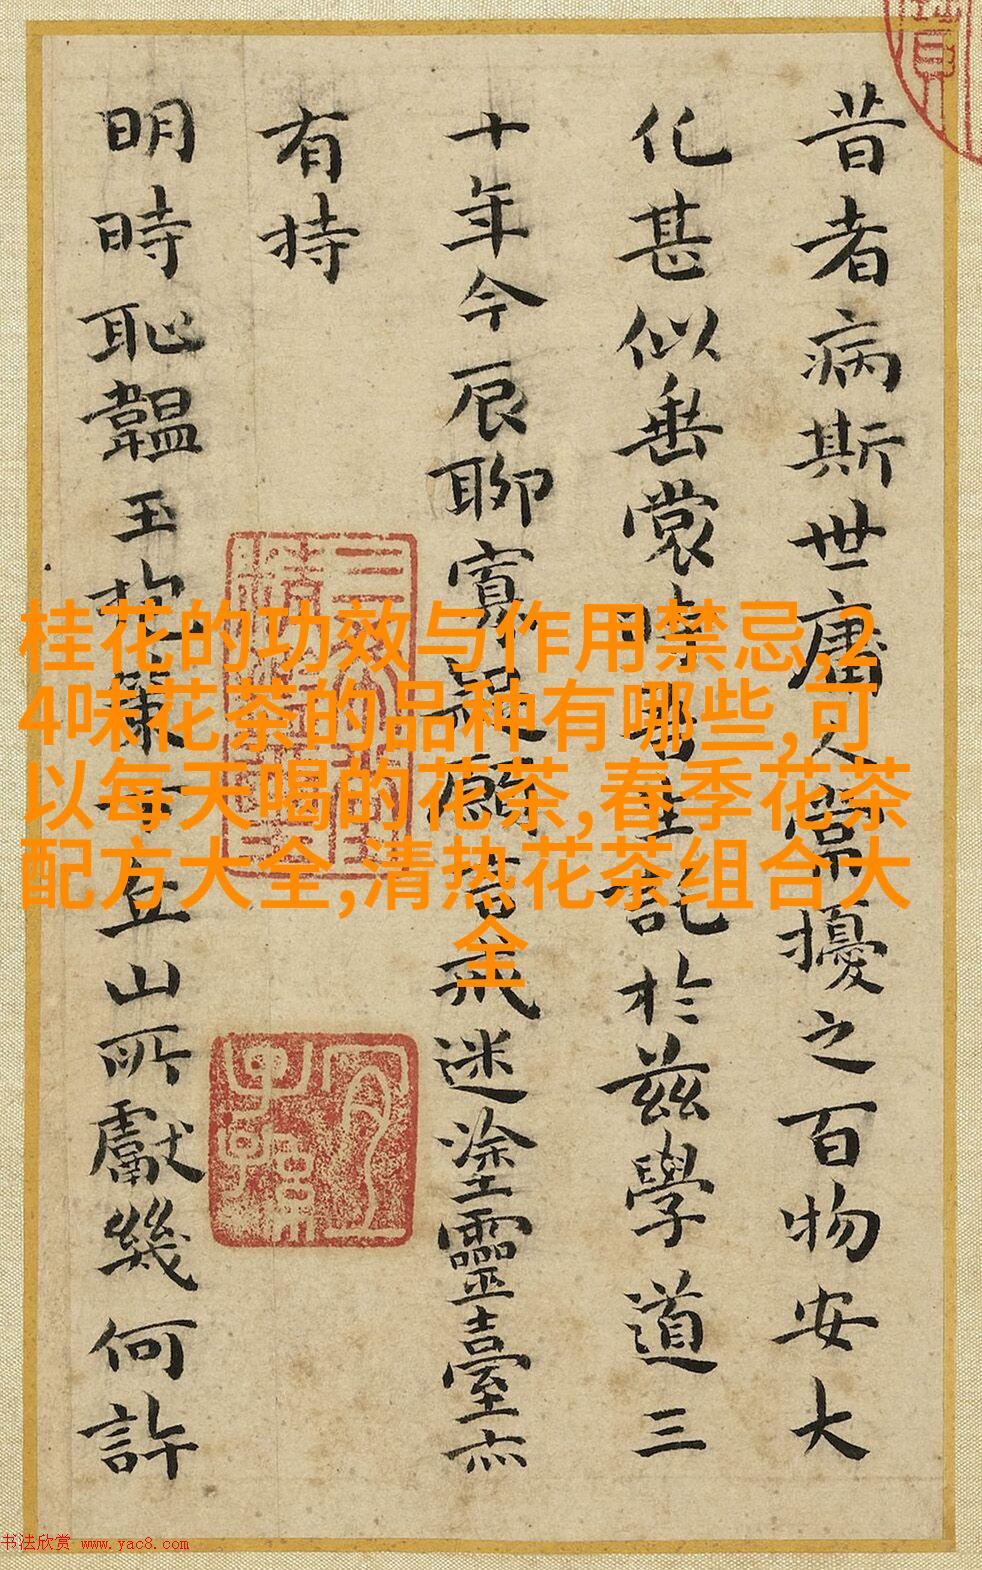 昔者病斯世庸人常擾之百物安大
化甚似垂裳時哉生託於茲學道三
十年今辰聊寡顧昔成迷塗靈臺亦
有持
明時恥韞玉抱策干丘山所獻幾何許
桂花的功效与作用禁忌,2
4味花茶的品种有哪些,可
以每天喝的花茶,春季花茶
配方大全,清热花茶组合大
全
书法欣赏 www.yac8.com